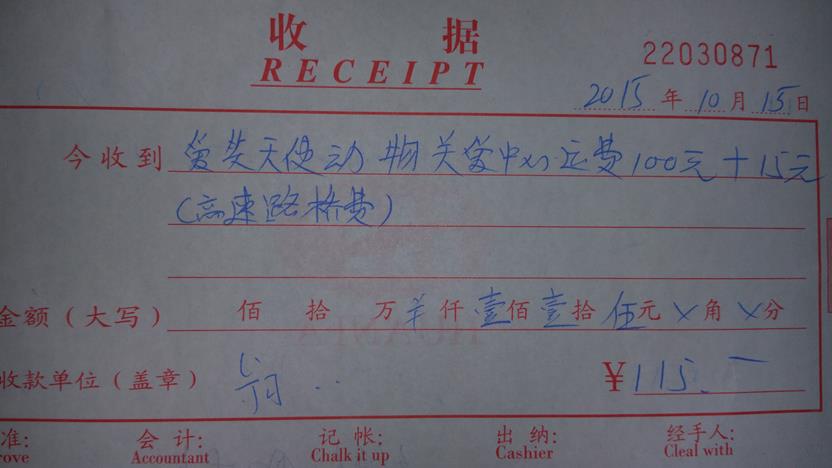 收 据
RECEIPT
22030871
2015 年 10 月 15 日
今收到 爱芙天使动物关爱中心运费100元+15元
(高速路桥费)
金额(大写) 佰 拾 万 羊 仟 壹 佰 壹 拾 伍 元 × 角 × 分
收款单位(盖章) ¥115.一
准: 会 计: 记 帐: 出 纳: 经手人:
rove Accountant Chalk it up Cashier Cleal with